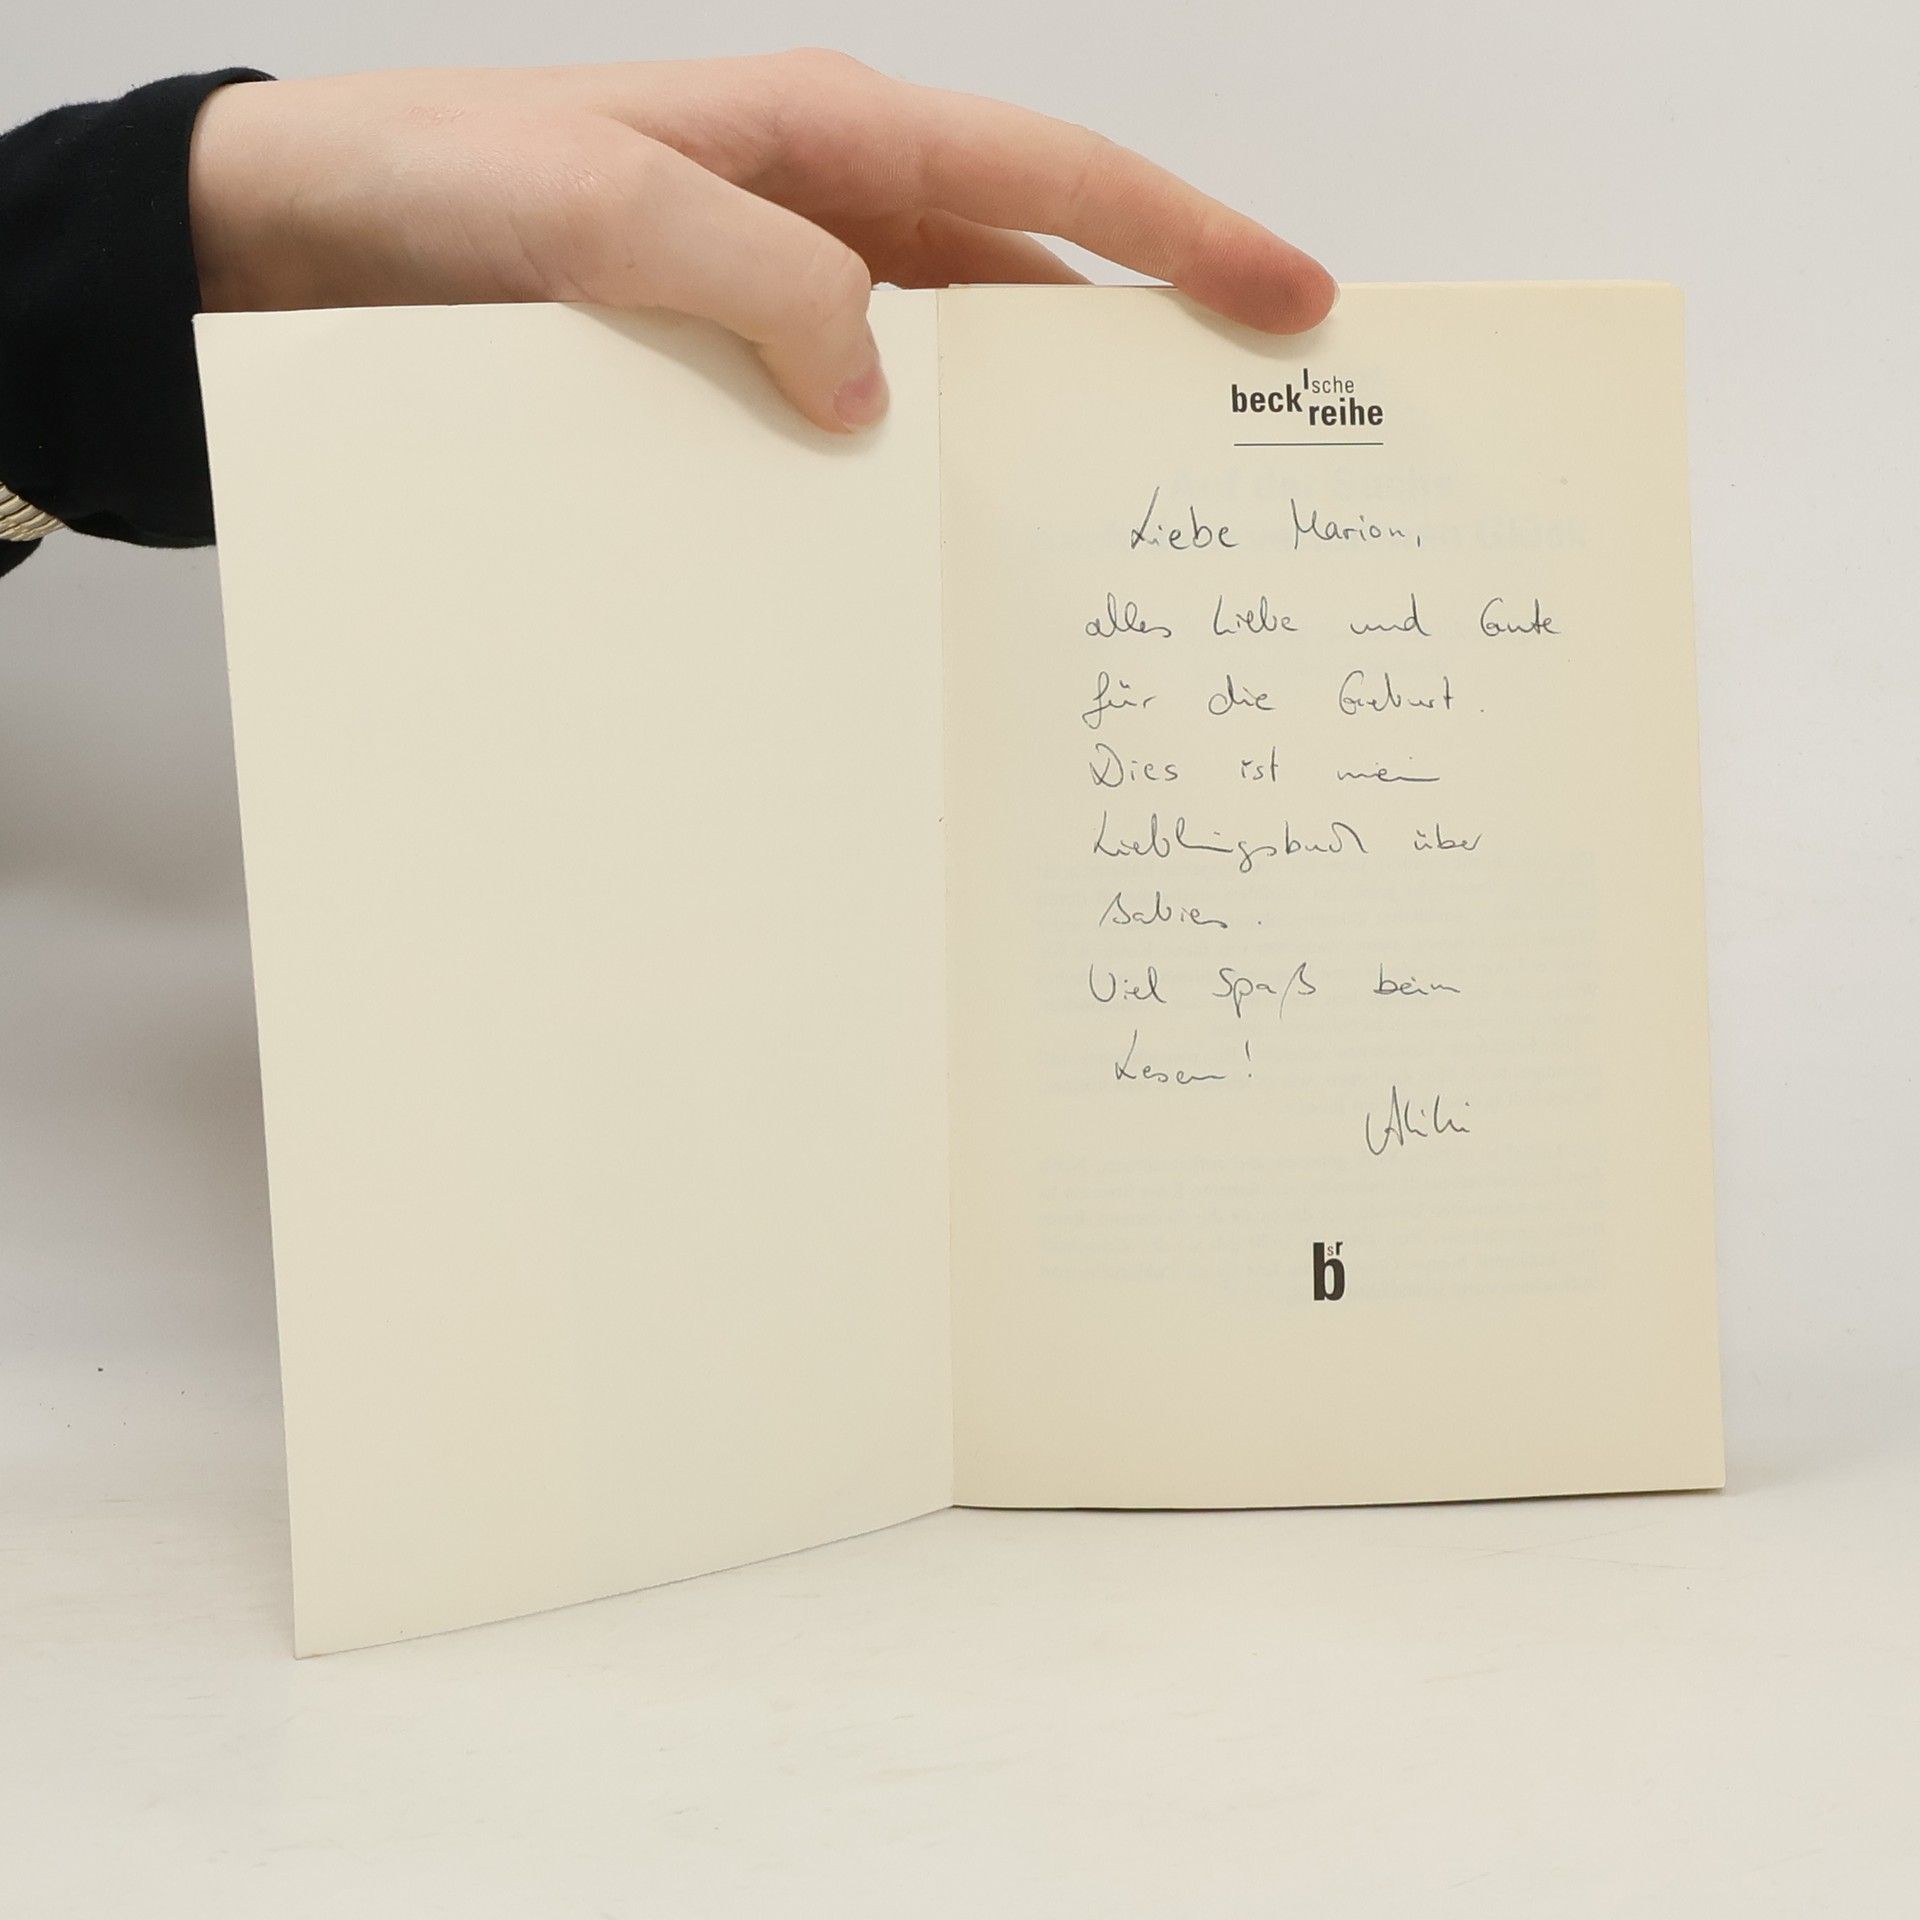 beck'sche
reihe
Liebe Marion,
alles Liebe und Gute
für die Geburt.
Dies ist mein
Lieblingsbuch über
Babies.
Viel Spaß beim
Lesen!
bsr